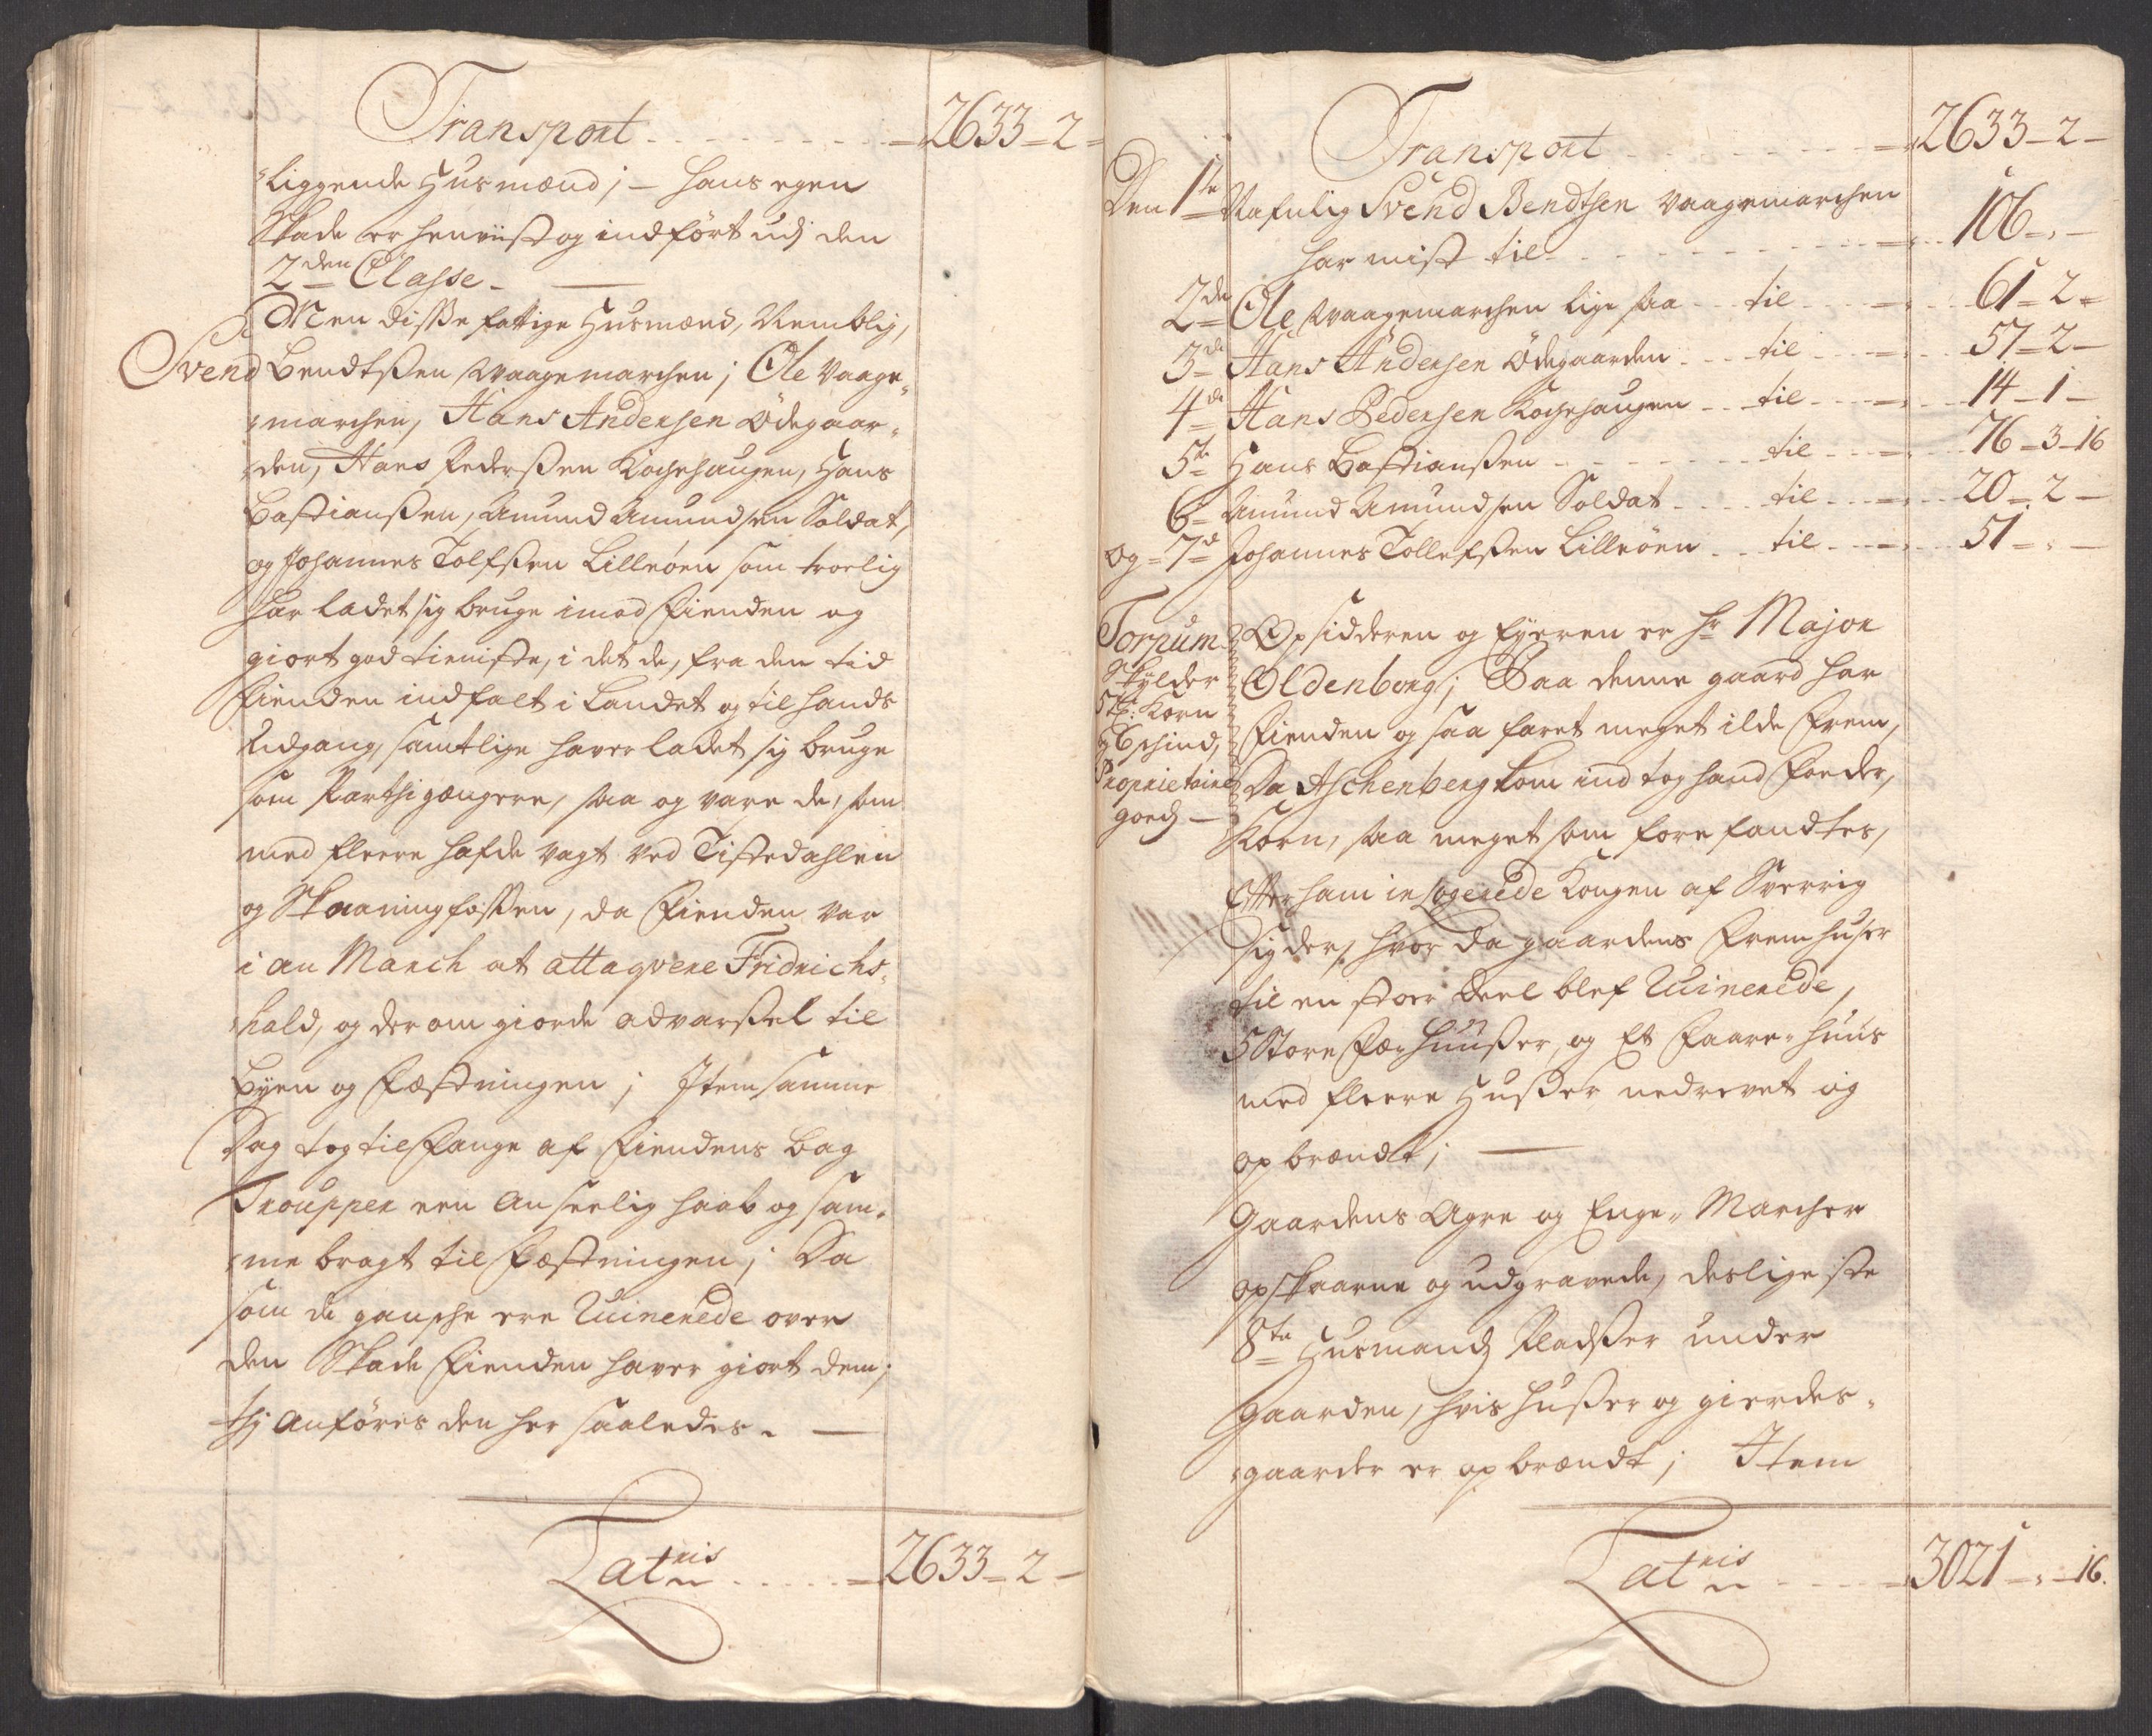 Transport - - - - - - - = 2633 = 2 =
"liggende Husmænd; - hans egen
Skade er henviist og indført udj den
2den Classe. —
Men disse fattige Husmænd, Nemblig,
Svend Bendtssen Waagemarchen; Ole Vaage„
"marchen, Hans Andersen Ødegaar„
"den, Hans Pederssen Kochehaugen, Hans
Bastianssen, Amund Amundsen Soldat,
og Johannes Tolfssen Lilleöen som troelig
har ladet sig bruge imod Fienden og
giort god tienniste, i det de, fra den tid
Fienden indfalt i Landet og til hands
Udgang, samtlige haver ladet sig bruge
som Parthigængere, saa og vare de, som
med fleere hafde vagt ved Tistedahlen
og Skaaningfossen, da Fienden var
i an March at attaqvere Fridrichs„
"hald, og derom giorde advarssel til
Byen og Fæstningen; Item samme
Dag tog til Fange af Fiendens bag
Troupper een anseelig haab og sam„
"me bragt til Fæstningen; Da
som de gansche ere Ruinerede over
den Skade Fienden haver giort dem;
thj anføres den her saaledes. —
Latris - - - - = 2633 = 2 -
Transport - - - - - - - = 2633 - 2 -
Den 1te Nafnlig Svend Bendtsen Vaagemarchen
har mist til - - - - - - - 106 - „ -
2de Ole Waagemarchen lige saa - - til - - - = 61 = 2 =
3de Hans Andersen Ødegaarden - - til - - - = 57 = 2 -
4de Hans Pedersen Kochehaugen - - til - - - = 14 - 1 -
5te Hans Bastianssen - - - - - til - - - = 76 - 3 - 16
6 = Amund Amundsen Soldat - - til - - - = 20 = 2 -
og = 7de Johannes Tollefssen Lilleöen - - til - - - = 51 - „ -
Torpum
Skylder
5 Korn
6 schind,
Proprietaire
goeds —
Opsidderen og Eyeren er Hr Major
Oldenborg; Paa denne gaard har
Fienden og saa faret meget ilde frem,
Da Aschenberg kom ind tog hand Foeder,
Korn, saa meget som forefandtes,
Efter ham inlogerede Kongen af Sverrig
sig der, hvor da gaardens Fremhuser
til en stoer Deel blef Ruinerede,
5 Store Fæ=huusser, og Et Faare=huus
med fleere Husser nedrevet og
opbrændt; —
Gaardens Agre og Enge„ Marcher
opskaarne og udgravede, desligeste
8te Husmands Pladsser under
Gaarden, hvis husser og gierdes„
"gaarder er opbrændt; Item
Latris - - - - = 3021 - „ - 16.